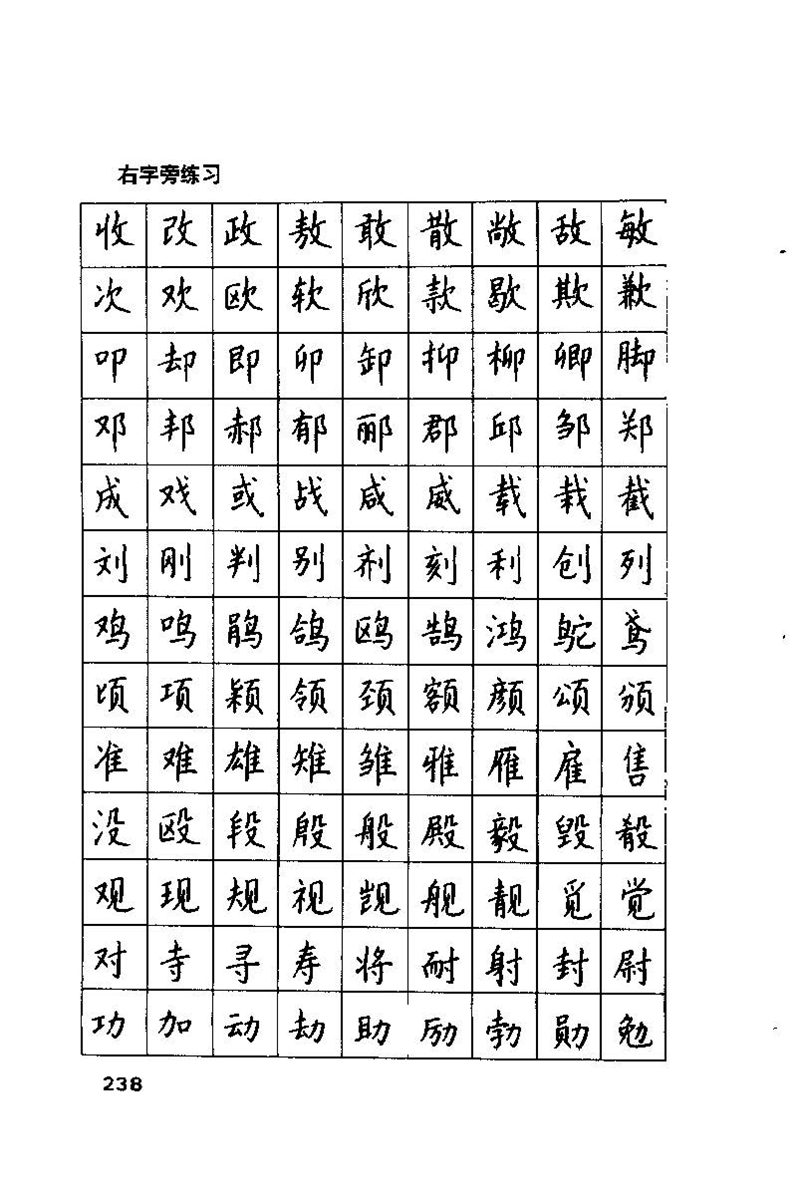 右字旁练习
收 改 政 敖 敢 散 敞 敌 敏
次 欢 欧 软 欣 款 歇 欺 歉
叩 却 即 卯 卸 抑 柳 卿 脚
邓 邦 郝 郁 郦 郡 邱 邹 郑
成 戏 或 战 咸 威 载 栽 截
刘 刚 判 别 剂 刻 利 创 列
鸡 鸣 鹃 鸽 鸥 鹄 鸿 鸵 鸢
顷 项 颖 领 颈 额 颜 颂 颁
准 难 雄 雉 雏 雅 雁 雇 售
没 殴 段 殷 般 殿 毅 毁 殽
观 现 规 视 觊 舰 靓 觅 觉
对 寺 寻 寿 将 耐 射 封 尉
功 加 动 劫 助 励 勃 勋 勉
238